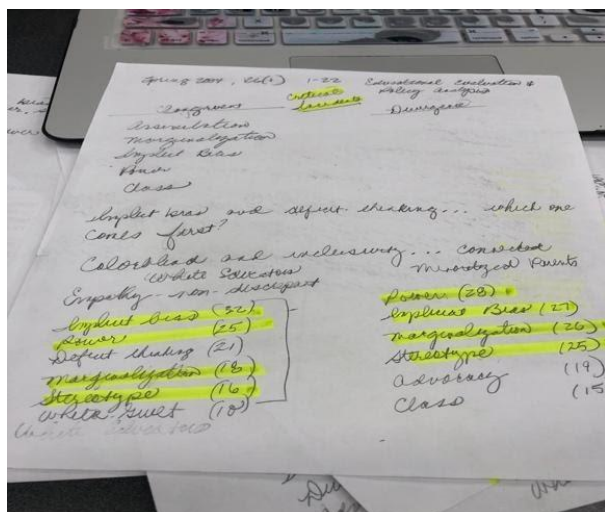 Spring 2004, 26(1) 1-22 Educational Evaluation &
Policy Analysis
Congruent Critical Divergence
Assimilation
Marginalization
Implicit Bias
Power
Class
Implicit bias and deficit thinking... which one
comes first?
Colorblind and inclusivity... connected
White Educators Minoritized Parents
Empathy - non-
Implicit bias (32)
Power (25)
Deficit thinking (21)
Marginalization (18)
Stereotype (16)
White Guilt (10)
Power (28)
Implicit Bias (27)
Marginalization (26)
Stereotype (25)
Advocacy (19)
Class (15